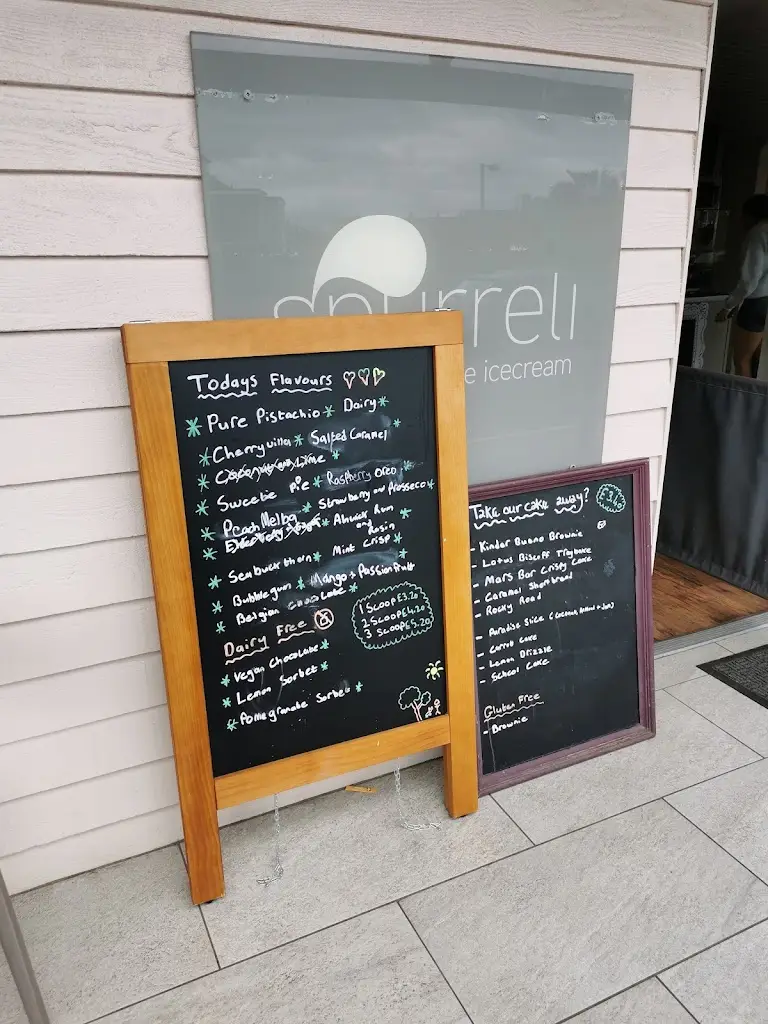 spurreli
e icecream
Todays Flavours
Pure Pistachio * Dairy *
* Cherryvilla * Salted Caramel
* *
* Sweetie Pie * Raspberry Oreo *
* Peach Melba * Strawberry and Prosecco *
* * Alnwick Rum and Rasin *
* Seabuckthorn * Mint Crisp *
* Bubblegum * Mango + Passionfruit
* Belgian Chocolate *
1 Scoop £3.20
2 Scoop £4.20
3 Scoop £5.20
Dairy Free
* Vegan Chocolate *
* Lemon Sorbet *
* Pomegranate Sorbet *
Take our cake away?
£3.40
- Kinder Bueno Brownie
- Lotus Biscoff Traybake
- Mars Bar Crispy Cake
- Caramel Shortbread
- Rocky Road
- Paradise Slice (Coconut, + Jam)
- Carrot Cake
- Lemon Drizzle
- School Cake
Gluten Free
- Brownie